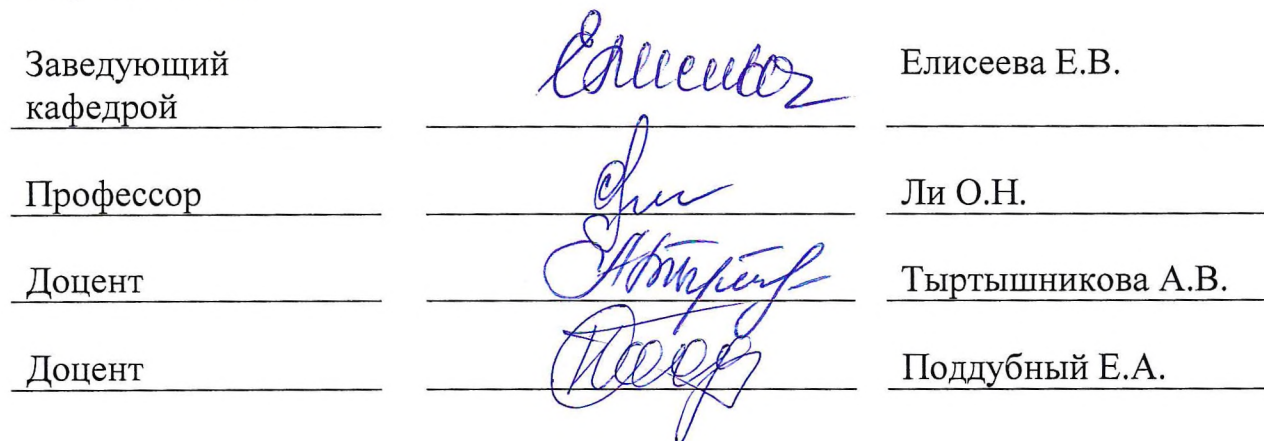 Заведующий Елисеева Е.В.
кафедрой
Профессор Ли О.Н.
Доцент Тыртышникова А.В.
Доцент Поддубный Е.А.